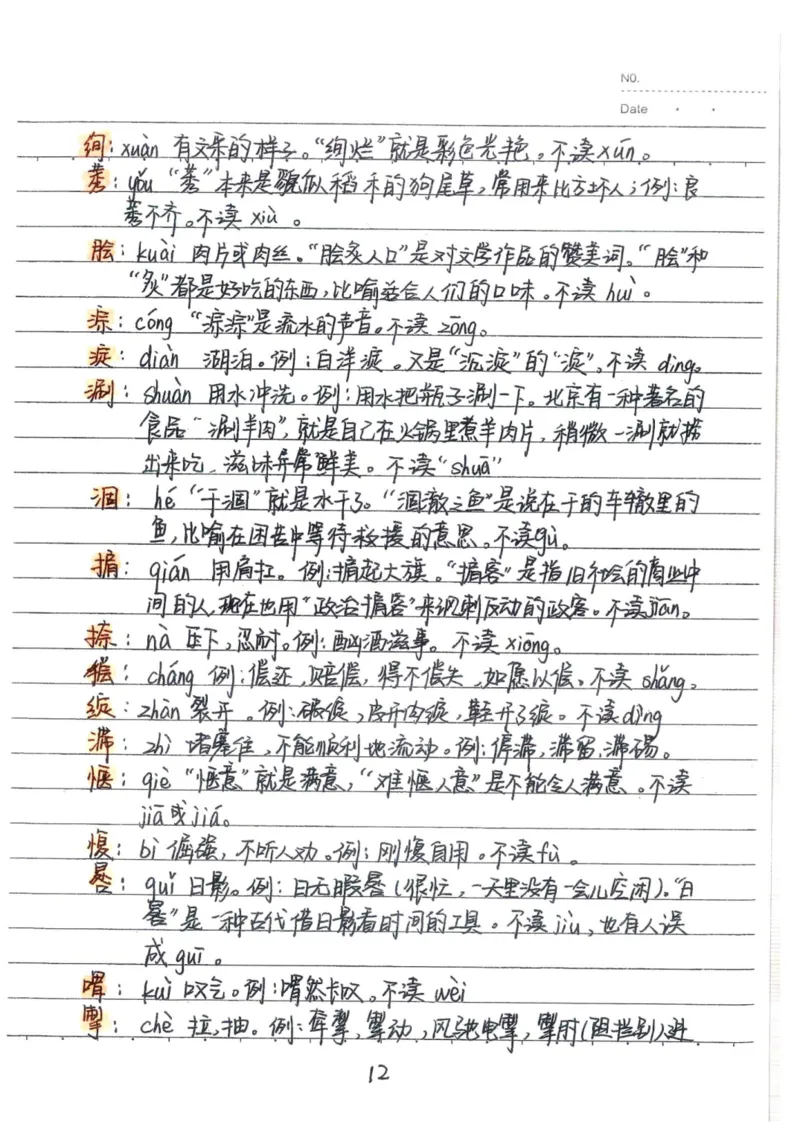 NO.
Date
绚：xuàn 有文采的样子。“绚烂”就是彩色光艳。不读xún。
莠：yǒu “莠”本来是貌似稻禾的狗尾草，常用来比方坏人；例：良
莠不齐。不读 xiù 。
脍：kuài 肉片或肉丝。“脍炙人口”是对文学作品的赞美词。“脍”和
“炙”都是好吃的东西，比喻适合人们的口味。不读 huì 。
淙：cóng “淙淙”是流水的声音。不读 zōng。
淀：diàn 湖泊。例：白洋淀。又是“沉淀”的“淀”。不读 dìng。
涮：shuàn 用水冲洗。例：用水把瓶子涮一下。北京有一种著名的
食品“涮羊肉”，就是自己在火锅里煮羊肉片，稍微一涮就捞
出来吃，滋味异常鲜美。不读“shuā”
涸：hé “干涸”就是水干了。“涸澈之鱼”是说在干的车辙里的
鱼，比喻在困苦中等待救援的意思。不读gù。
掮：qián 用肩扛。例：掮起大旗。“掮客”是指旧社会的商业中
间的人，现在也用“政治掮客”来讽刺反动的政客。不读jiān。
捺：nà 压下，忍耐。例：酗酒滋事。不读 xiōng。
偿：cháng 例：偿还，赔偿，得不偿失，如愿以偿。不读 shǎng。
绽：zhàn 裂开。例：破绽，皮开肉绽，鞋开了绽。不读 dìng
滞：zhì 堵塞住，不能顺利地流动。例：停滞，滞留，滞砀。
惬：qiè “惬意”就是满意，“难惬人意”是不能令人满意。不读
jiā或jiá。
愎：bì 倔强，不听人劝。例：刚愎自用。不读fù 。
晷：guǐ 日影。例：日无暇晷（很忙，一天里没有一会儿空闲）。“日
晷”是一种古代借日影看时间的工具。不读 jiù，也有人误
成 guī 。
喟：kuì 叹气。例：喟然长叹。不读 wèi
掣：chè 拉，抽。例：牵掣，掣动，风驰电掣，掣肘（阻挡别）进
12